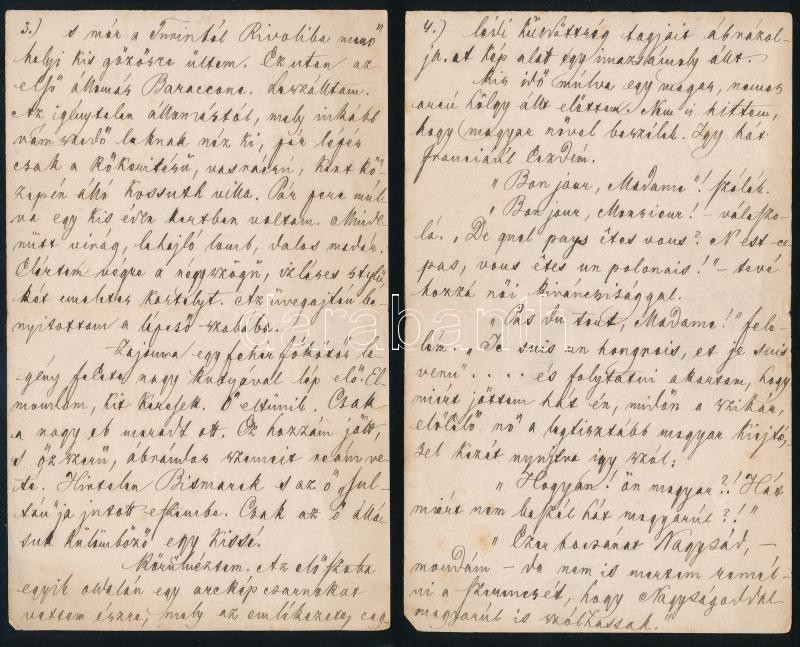 3.) s már a Turintól Rivoliba menő
helyi kis gőzösre ültem. Ez uton az
első állomás Baraccone. Leszálltam.
Az igénytelen állomástól, mely inkább
vámszedő laknak néz ki, pár lépés
csak a kőkerítésű, vasrácsú, kert kö-
zepén álló Kossuth villa. Pár perc múl-
va egy kis éden kertben voltam. Minde-
nütt virág, lehajló lomb, dalos madár.
Elértem végre a négyszögű, ízléses stylű
két emeletes kastélyt. Az üvegajtón be-
nyitottam a lépcső szobába.
Zajomra egy fehér főkötős le-
gény fekete nagy kutyával lép elő. El-
mondom, kit keresek. Ő eltűnik. Csak
a nagy eb maradt ott. Ez hozzám jött,
s őz szerű, ábrándos szemeit reám ve-
té. Hirtelen Bismarck s az ő „Sul-
tán"ja jutott eszembe. Csak az ő állá-
suk külömböző egy kissé.
Körülnéztem. Az előszoba
egyik oldalán egy arckép csarnokot
vettem észre, mely az emlékezetes ceg-
4.) lédi küldöttség tagjait ábrázol-
ja. A kép alatt egy imazsámoly állt.
Kis idő múlva egy magas, nemes
arcú hölgy állt előttem. Nem is hittem,
hogy magyar nővel beszélek. Így hát
franciáúl kezdém.
„Bon jour, Madame"! szólék.
„Bonjour, Monsieur! - válaszo-
lá. „De quel pays êtes vous? N'est-ce
pas, vous êtes un polonais!" - tevé
hozzá női kiváncsisággal.
„Pas du tout, Madame!" fele-
lém. „Je suis un hongrois, et je suis
venu" . . . . és folytatni akartam, hogy
miért jöttem hát én, midőn a szikár,
előkelő nő a legtisztább magyar kiejtés-
sel kezét nyujtva így szól:
„Hogyan! Ön magyar?! Hát
miért nem beszél hát magyarúl?!"
„Ezer bocsánat Nagysád, -
mondám - de nem is mertem remél-
ni a szerencsét, hogy Nagyságoddal
magyarúl is szólhassak."
darabanth